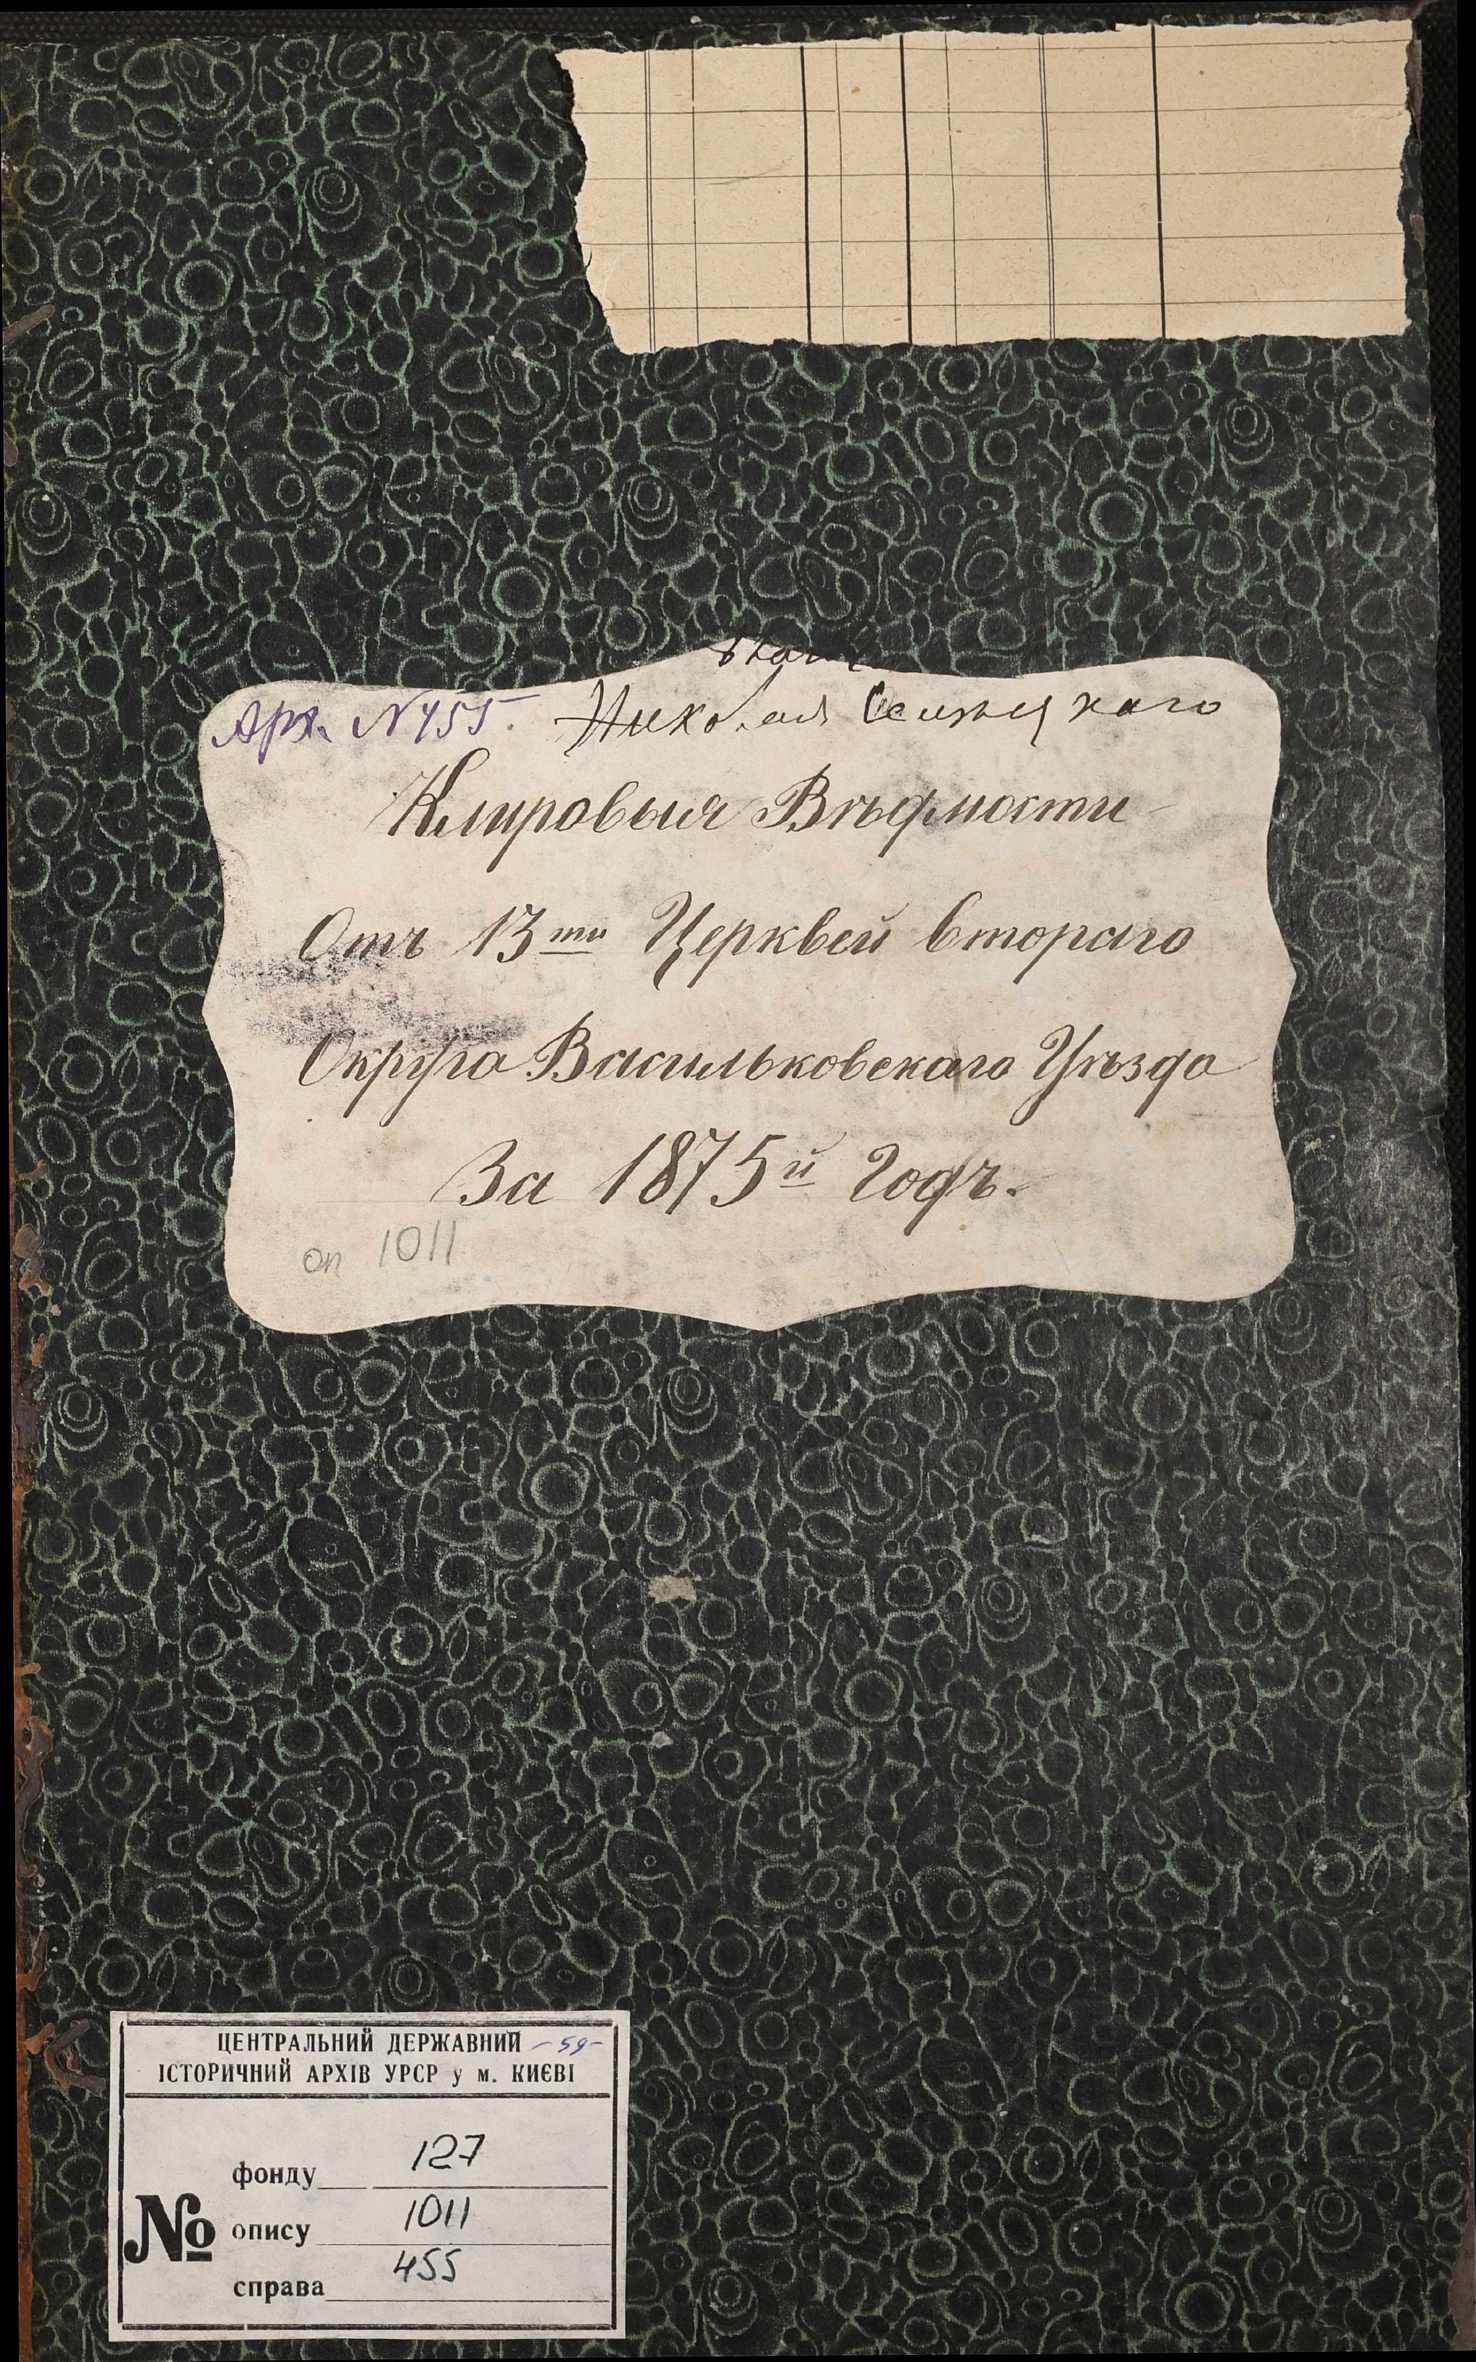 Арх. № 455.
Николая
Клировыя Вѣдмости
Отъ 13ти Церквей Втораго
Округа Васильковскаго Уѣзда
За 1875й Годъ.
оп 1011
ЦЕНТРАЛЬНИЙ ДЕРЖАВНИЙ -59-
ІСТОРИЧНИЙ АРХІВ УРСР у м. КИЄВІ
фонду 127
№ опису 1011
справа 455